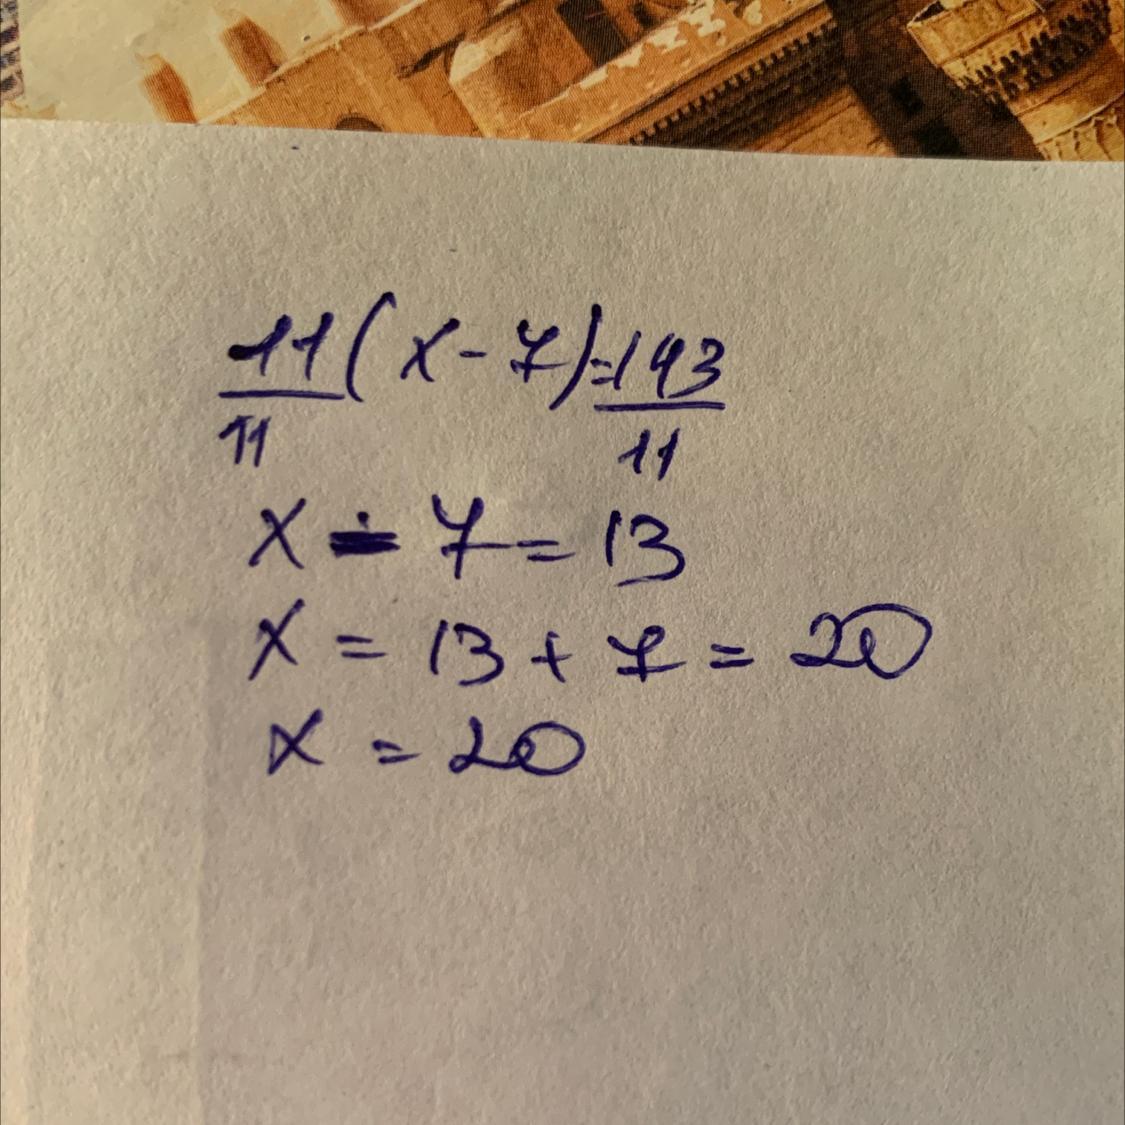 11(x-7)=143
11 11
x - 7 = 13
x = 13 + 7 = 20
x = 20